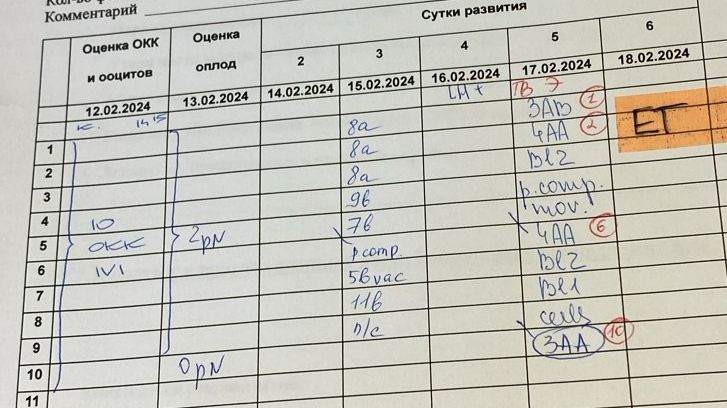 Комментарий
Оценка ОКК и ооцитов
Оценка оплод
Сутки развития
2 3 4 5 6
12.02.2024 13.02.2024 14.02.2024 15.02.2024 16.02.2024 17.02.2024 18.02.2024
к. 14 15 LH + ТВ Э
1 8а 3АВ 2 ET
2 8а 4АА 2
3 8а Bl2
4 10 9в p.comp.
5 ОКК 2pN 7в mov. 4АА 6
6 1V1 pcomp. Bl2
7 5в vac Bl1
8 11в cells
9 п/с 3АА 10
10 0pN
11